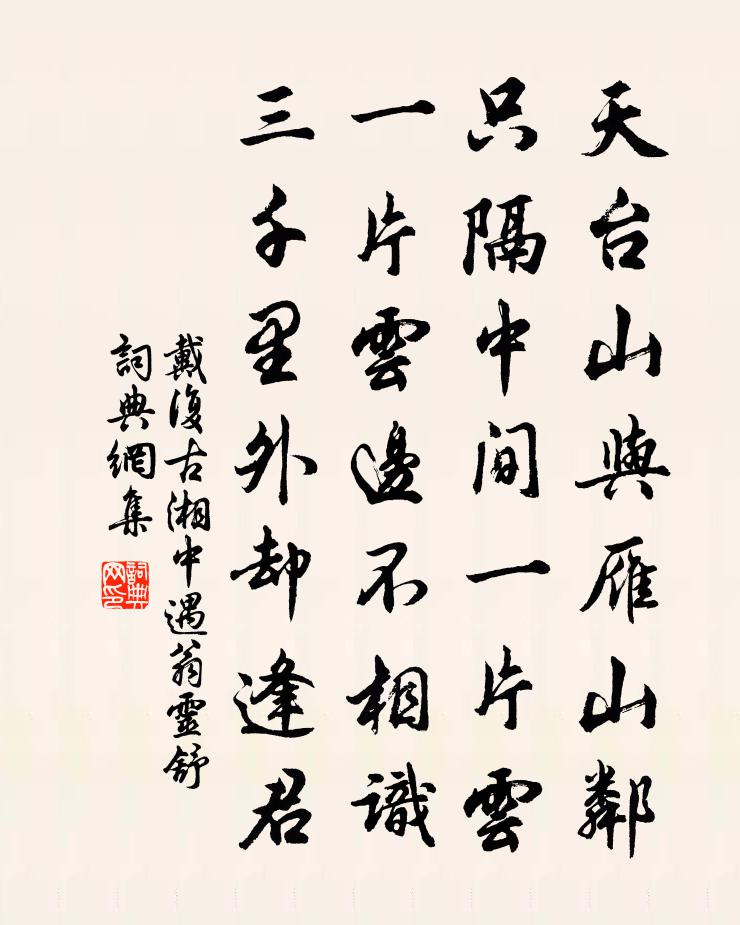 天台山與雁山鄰
只隔中間一片雲
一片雲邊不相識
三千里外却逢君
戴復古湘中遇翁靈舒
詞典網集
詞典网印